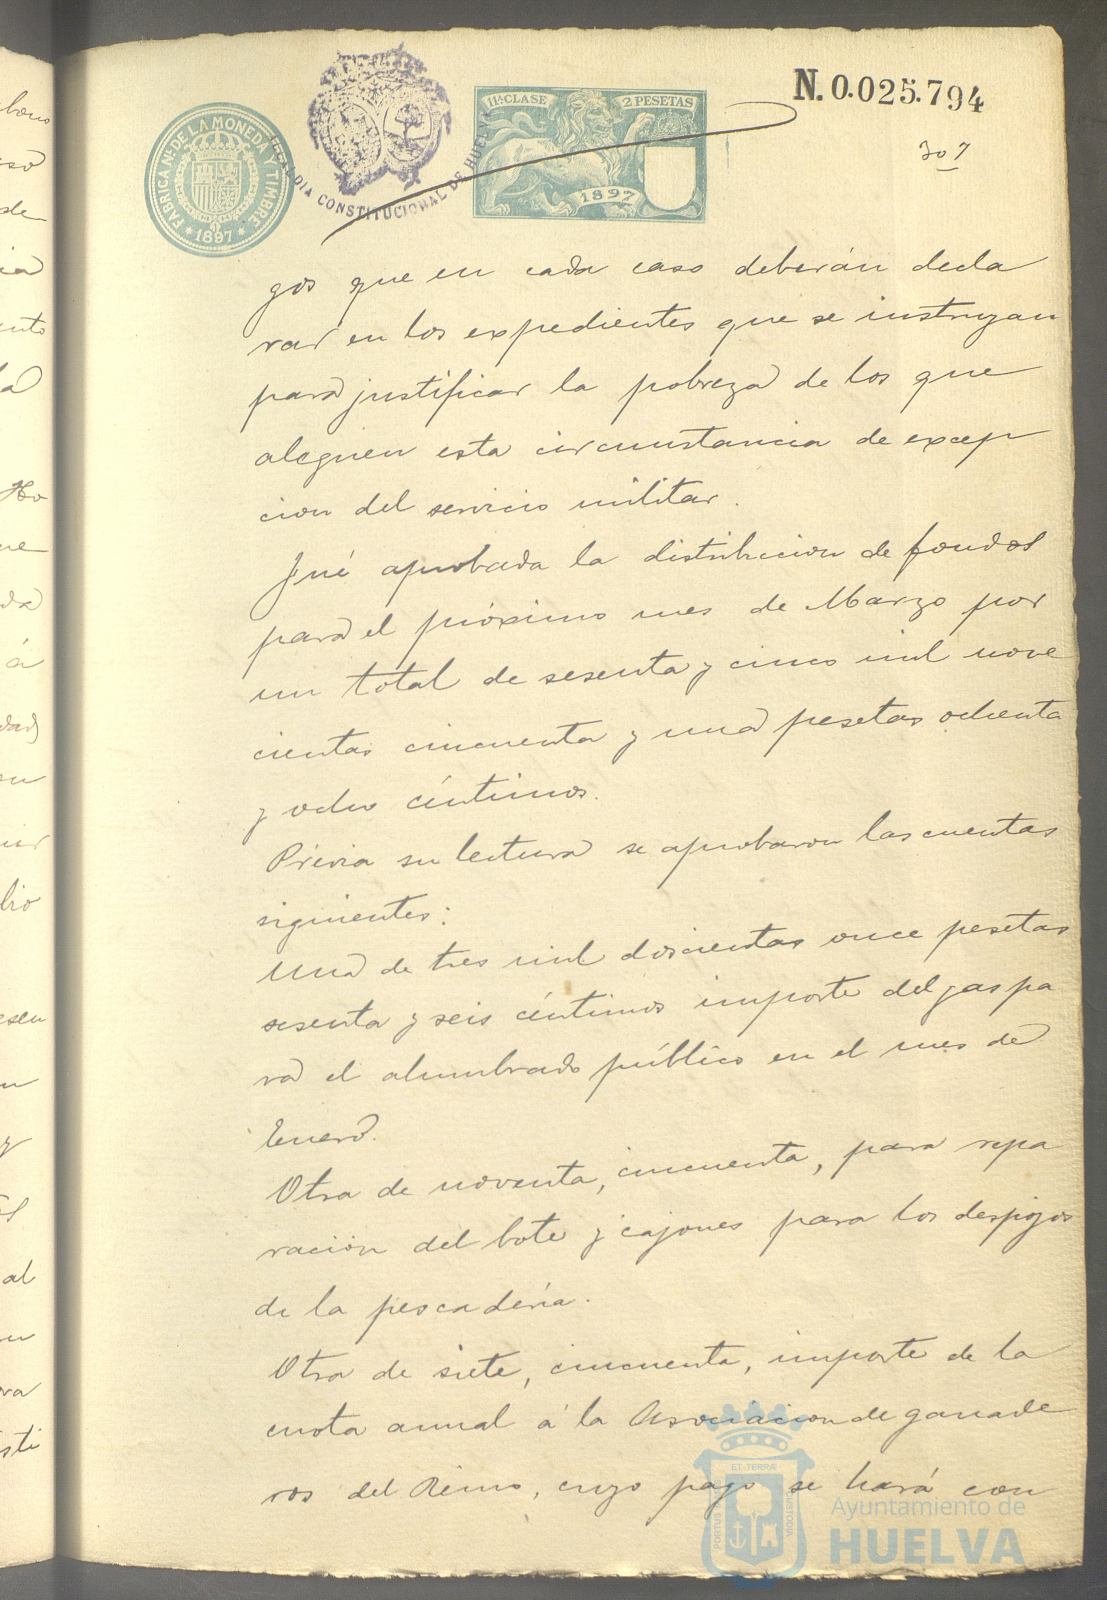 N. 0.025.794
307
FABRICA Nal. DE LA MONEDA Y TIMBRE
* 1897 *
CONSTITUCIONAL DE HUELVA
11ª CLASE
2 PESETAS
1897
gos que en cada caso deberán decla
rar en los expedientes que se instruyan
para justificar la pobreza de los que
aleguen esta circunstancia de excep
cion del servicio militar.
Fué aprobada la distribucion de fondos
para el próximo mes de Marzo por
un total de sesenta y cinco mil nove
cientas cincuenta y una pesetas ochenta
y ocho céntimos.
Prévia su lectura se aprobaron las cuentas
siguientes:
Una de tres mil doscientas once pesetas
sesenta y seis céntimos importe del gas pa
ra el alumbrado público en el mes de
Enero.
Otra de noventa, cincuenta, para repa
ración del bote y cajones para los despojos
de la pescadería.
Otra de siete, cincuenta, importe de la
cuota anual á la Asociacion de ganade
ros del Reino, cuyo pago se hará con
PORTUS
ET TERRÆ
CUSTODIA
Ayuntamiento de
HUELVA